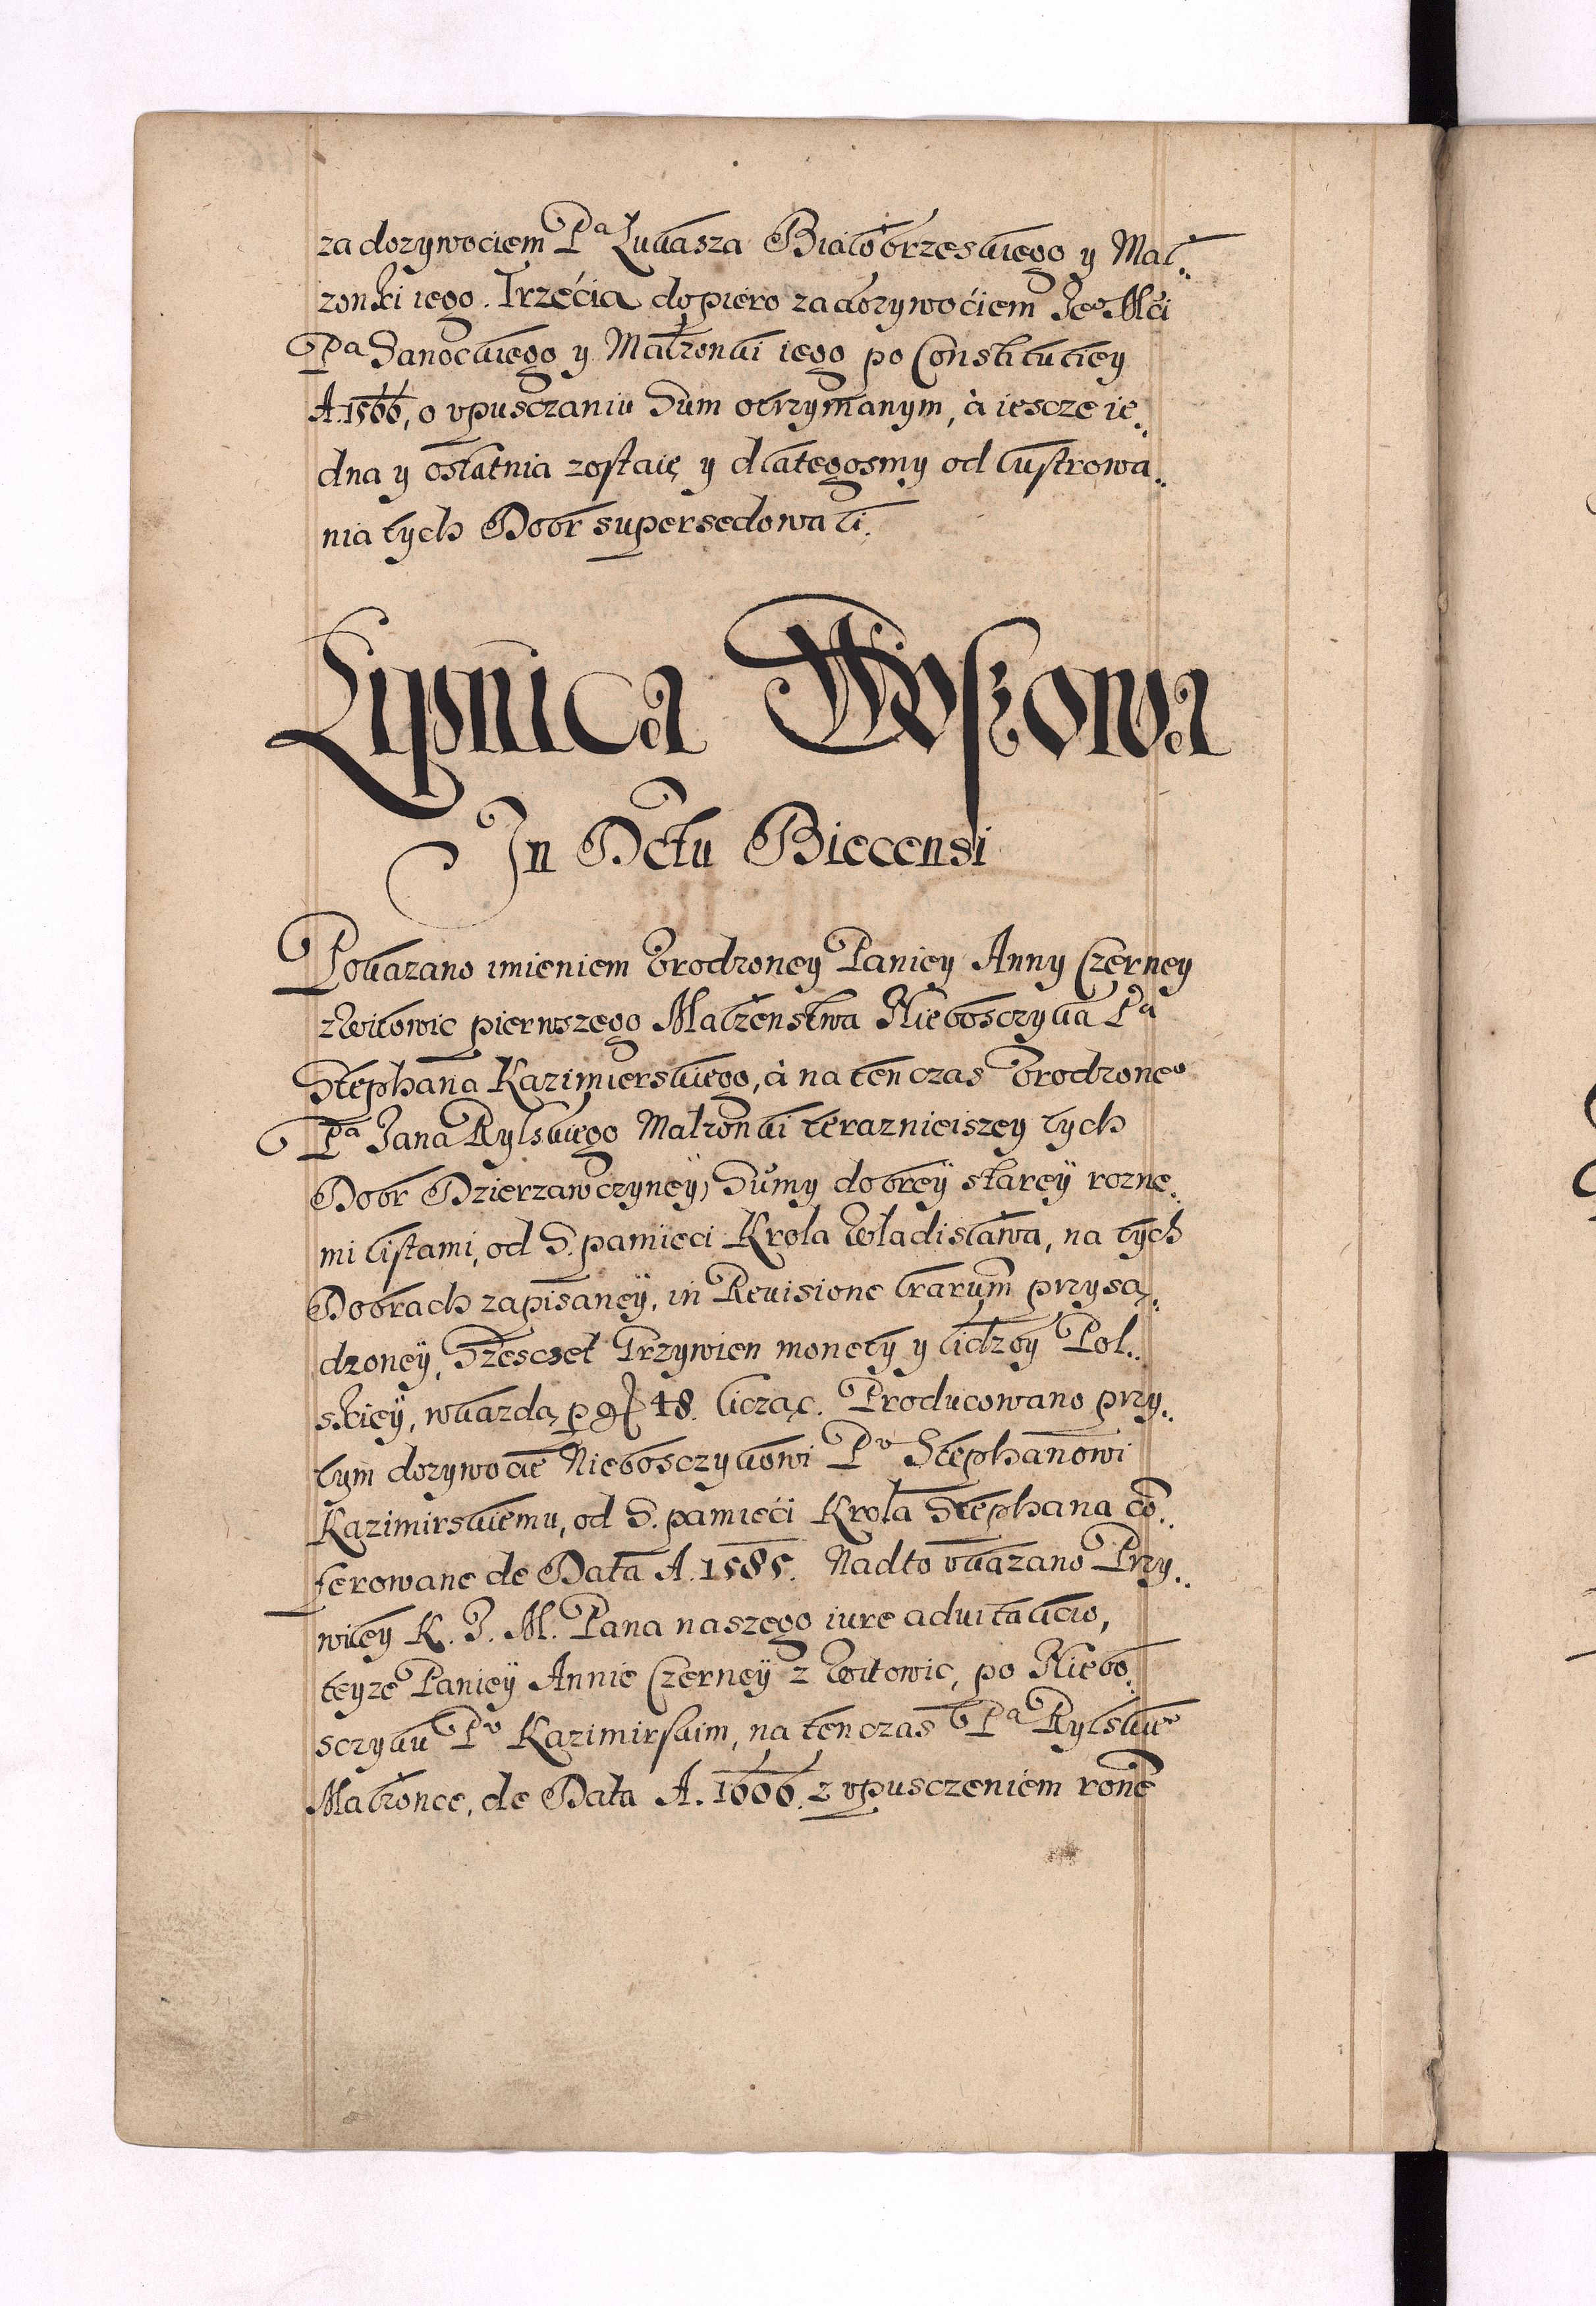 za dozywociem Pa Lukasza Białobrzeskiego y Mał..
zonki iego. Trzećia dopiero za dozywoćiem Jeo Mći
Pa Sanockiego y Małzonki iego po Constitutiey
A. 1566, o vpusczaniu Sum otrzymanym, à iescze ie..
dna y ostatnia zostaie, y dlategosmy od lustrowa..
nia tych Dobr supersedowali.
Lipnica Woskowa
In Dctu Biecensi
Pokazano imieniem Vrodzoney Paniey Anny Czerney
z Witowic pierwszego Małzenstwa Nieboszczyka Pa
Stephana Kazimierskiego, à na ten czas Vrodzoneo
Pa Jana Rylskiego Małzonki teraznieiszey tych
Dobr Dzierzawczyneÿ, Sumy dobreÿ stareÿ rozne..
mi listami, od S. pamieci Krola Władisława, na tych
Dobrach zapisaneÿ, in Reuisione lrarum przysą..
dzoneÿ, Szescset Grzywien monety y lidzby Pol..
skieÿ, w kazdą p gr 48. licząc. Producowano przy..
tym dozywocie Nieboszczykowi Pu Stephanowi
Kazimirskiemu, od S. pamieći Krola Stephana co..
ferowane de Data A. 1585. Nadto vkazano Przy..
wiley K. J. M. Pana naszego iure aduitalicio,
teyze Panieÿ Annie Czerneÿ z Witowic, po Niebo..
sczyku Pu Kazimirskim, na ten czas Pa Rylskieo
Małzonce, de Data A. 1606. z vpusczeniem ronē